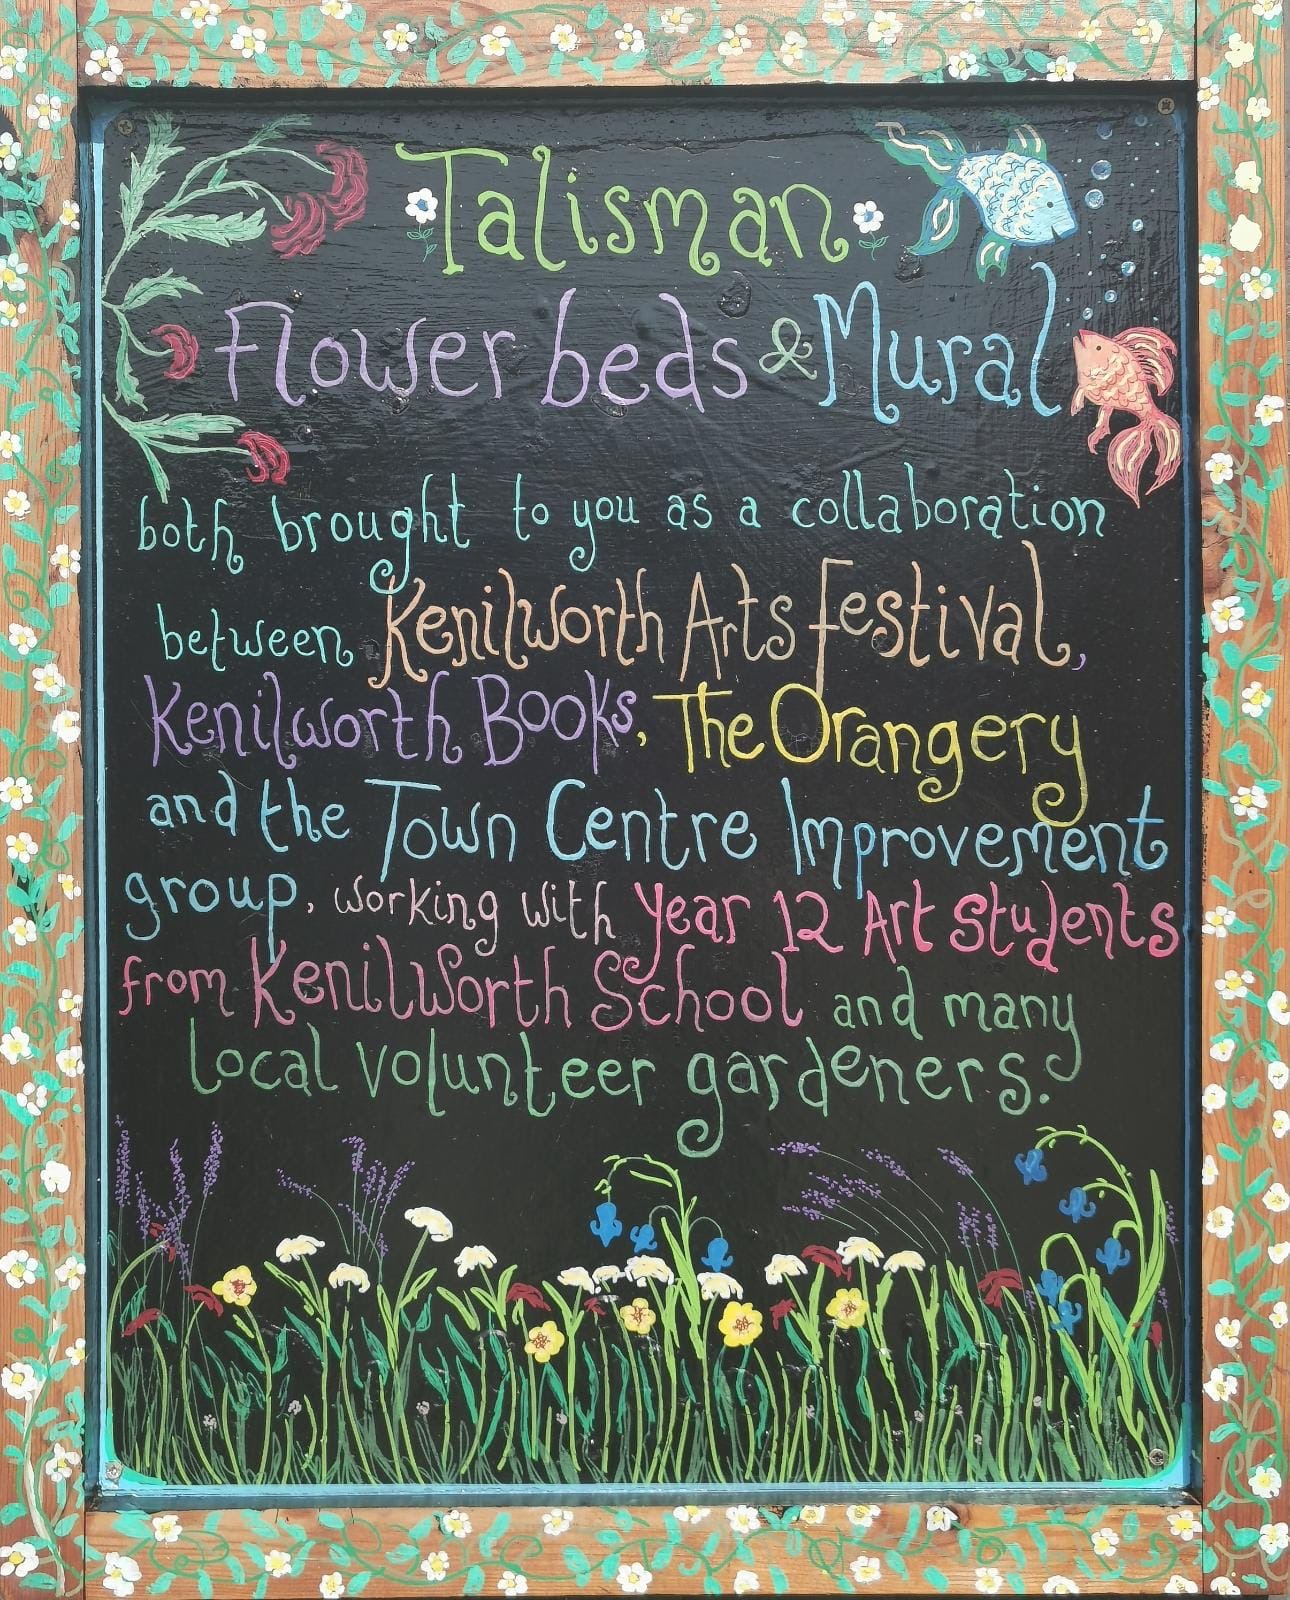 Talisman
Flower beds & Mural
both brought to you as a collaboration
between Kenilworth Arts Festival,
Kenilworth Books, The Orangery
and the Town Centre Improvement
group, working with Year 12 Art Students
from Kenilworth School and many
local volunteer gardeners.